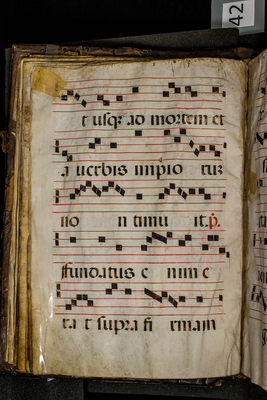 42
t usqз ad mortem et
a uerbis impio ruz
no n timu it. p.
ffundatus e nim e
ra t supra fi rmam